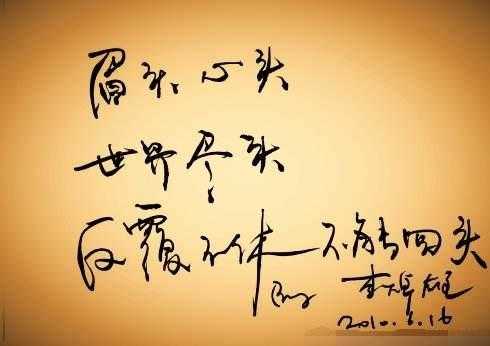 眉头心头
世界尽头
反覆不休 不回头
By 李焯雄
2010.6.16